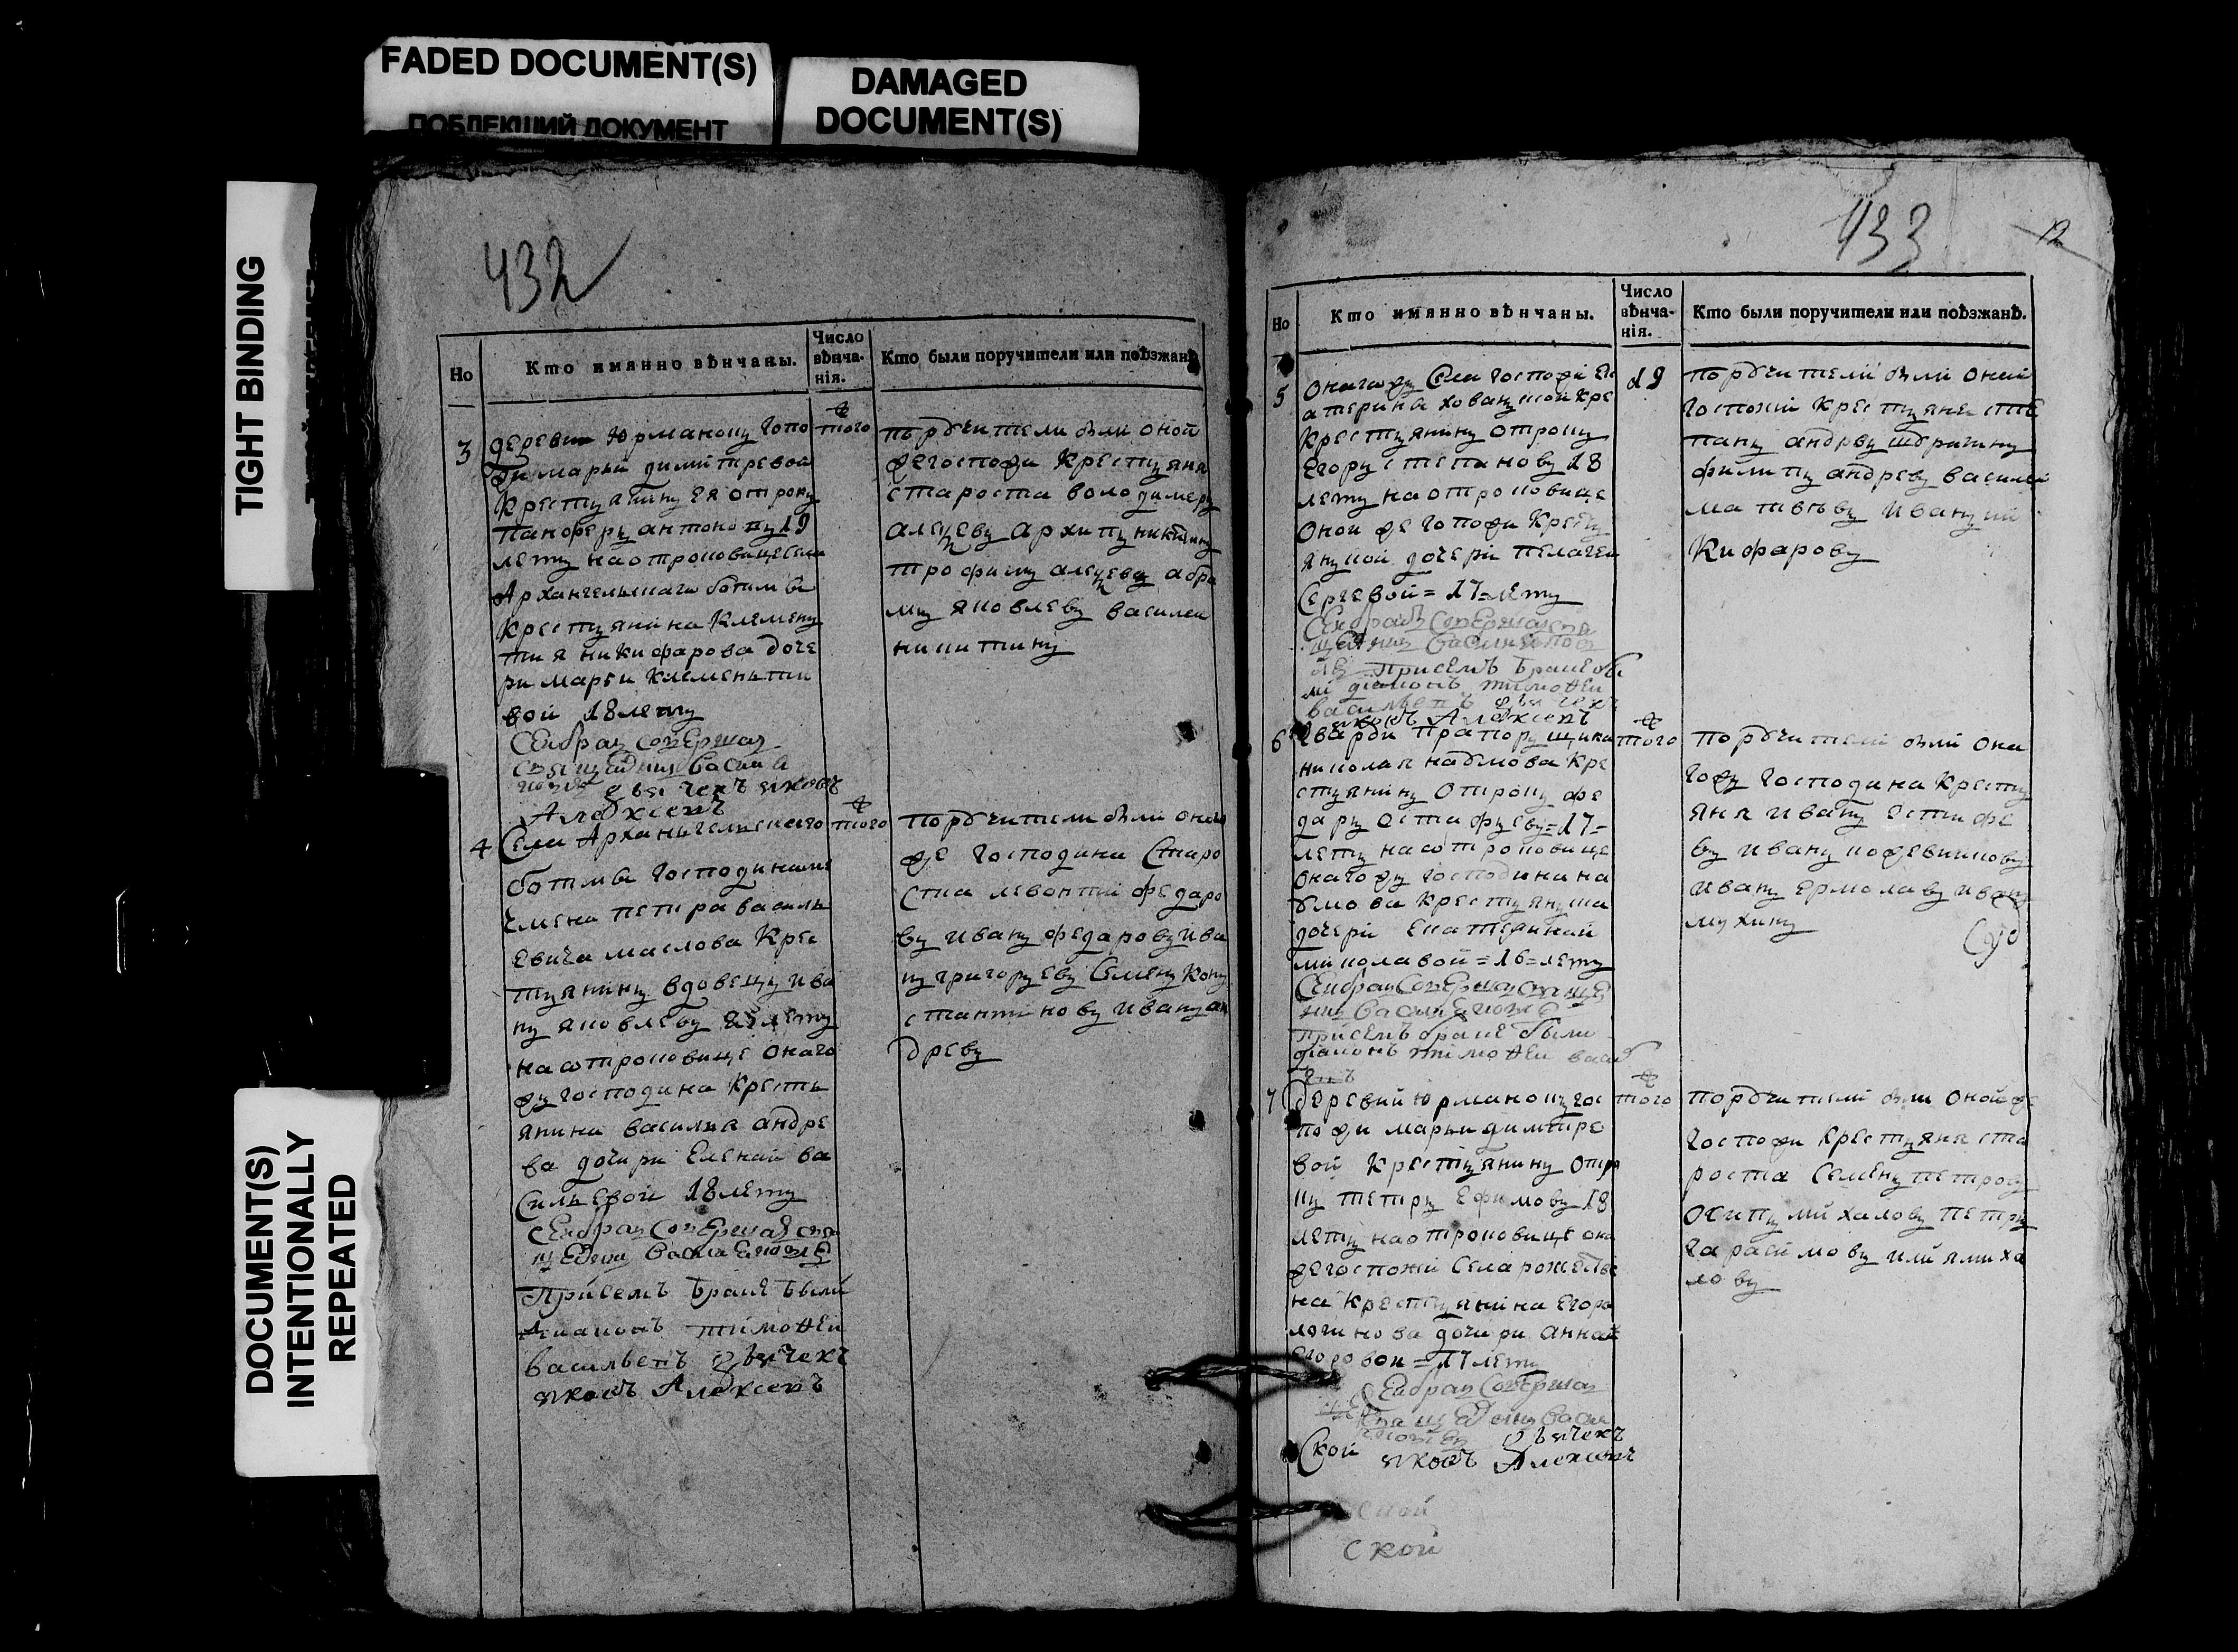 FADED DOCUMENT(S)
ПОБЛЕКШИЙ ДОКУМЕНТ
DAMAGED
DOCUMENT(S)
TIGHT BINDING
DOCUMENT(S)
INTENTIONALLY
REPEATED
432
Но
Кто имянно вѣнчаны.
Число
вѣнча-
нія.
Кто были поручители или поѣзжанѣ
3
деревни Юрманоцу Гопо
жи марьи димитревой
Крестьянину ея отроку
Панферу антонову 19
лету на отроковице села
Архангельскаго ботьмы
Крестьянина Клемену
тия никифарова доче
ри марьи Клеменьтии
вой 18 лету
Сей брак совершал
священник Василе
дьячекъ яковъ
Алексеевъ
того
поручители были оной
же госпожи Крестьяня
староста володимеру
алексеву Архипу никитину
трофиму алексеву абра
му яковлеву василеи
никитину
4
Села Арханьгелыскаго
ботьмы господина
петра василь
евича маслова Крес
тьянину вдовецу ива
ну яковлеву лету
на отроковице онаго
жу господина Кресть
янина василия андре
ва дочири Еленаи ва
сильевой 18 лету
Сей брак совершал свя
щенник Василе
Присемъ браке были
диаконъ тимоѳеи
васильевъ дьячекъ
яковъ Алексеевъ
того
поручители были онаго
же господина Старо
ста левонтий федаро
ву ивану федарову ива
ну григорьеву Семену Кону
стантинову ивану ан
древу
433
12
Но
Кто имянно вѣнчаны.
Число
вѣнча-
нія.
Кто были поручители или поѣзжанѣ.
5
Онагожу Села Госпожи Ек
атерины хованцкой Кре
Крестьянину отроку
Егору степанову 18
лету на отроковице
Оной же Гопожи Кресть
янукой дочери пелагеи
Сергевой = 17 = лету
Сей брак совершал свя
щенник Василе
Присемъ браке бы
ли диаконъ тимоѳеи
васильевъ дьячекъ
яковъ Алексеевъ
19
поручители были оной
Госпожи Крестьяня сте
пану андреву
филипу андреву василеи
матвеву ивану ни
Кифарову
6
Гварди прапорущика
николая наумова Кре
стьянину Отроку фе
дару остафьеву = 17 =
лету на отроковице
онагожу господина на
умова Крестьянука
дочери Екатеринаи
миколавой = 16 = лету
Сей брак совершал свяще
ник Василе
присемъ браке были
диаконъ тимоѳеи васил
евъ
того
поручители были она
гожу господина Кресть
яня ивану естифе
ву ивану
ивану ермолаву ивану
мухину
7
деревни Юрманоцу гос
пожи марьи димитре
вой Крестьянину отро
ку петру Ефимову 18
лету на отроковице она
же госпожи Села рожестве
на Крестьянина Егора
логинова дочири аннаи
Егоровои = 17 лету
Сей брак совершал
священник Васил
дьячекъ
Ской яковъ Алексеевъ
ской
ской
того
поручители были Оной же
госпожи Крестьяня ста
роста Семену петрову
Осипу михалову петру
гарасимову илии михa
лову